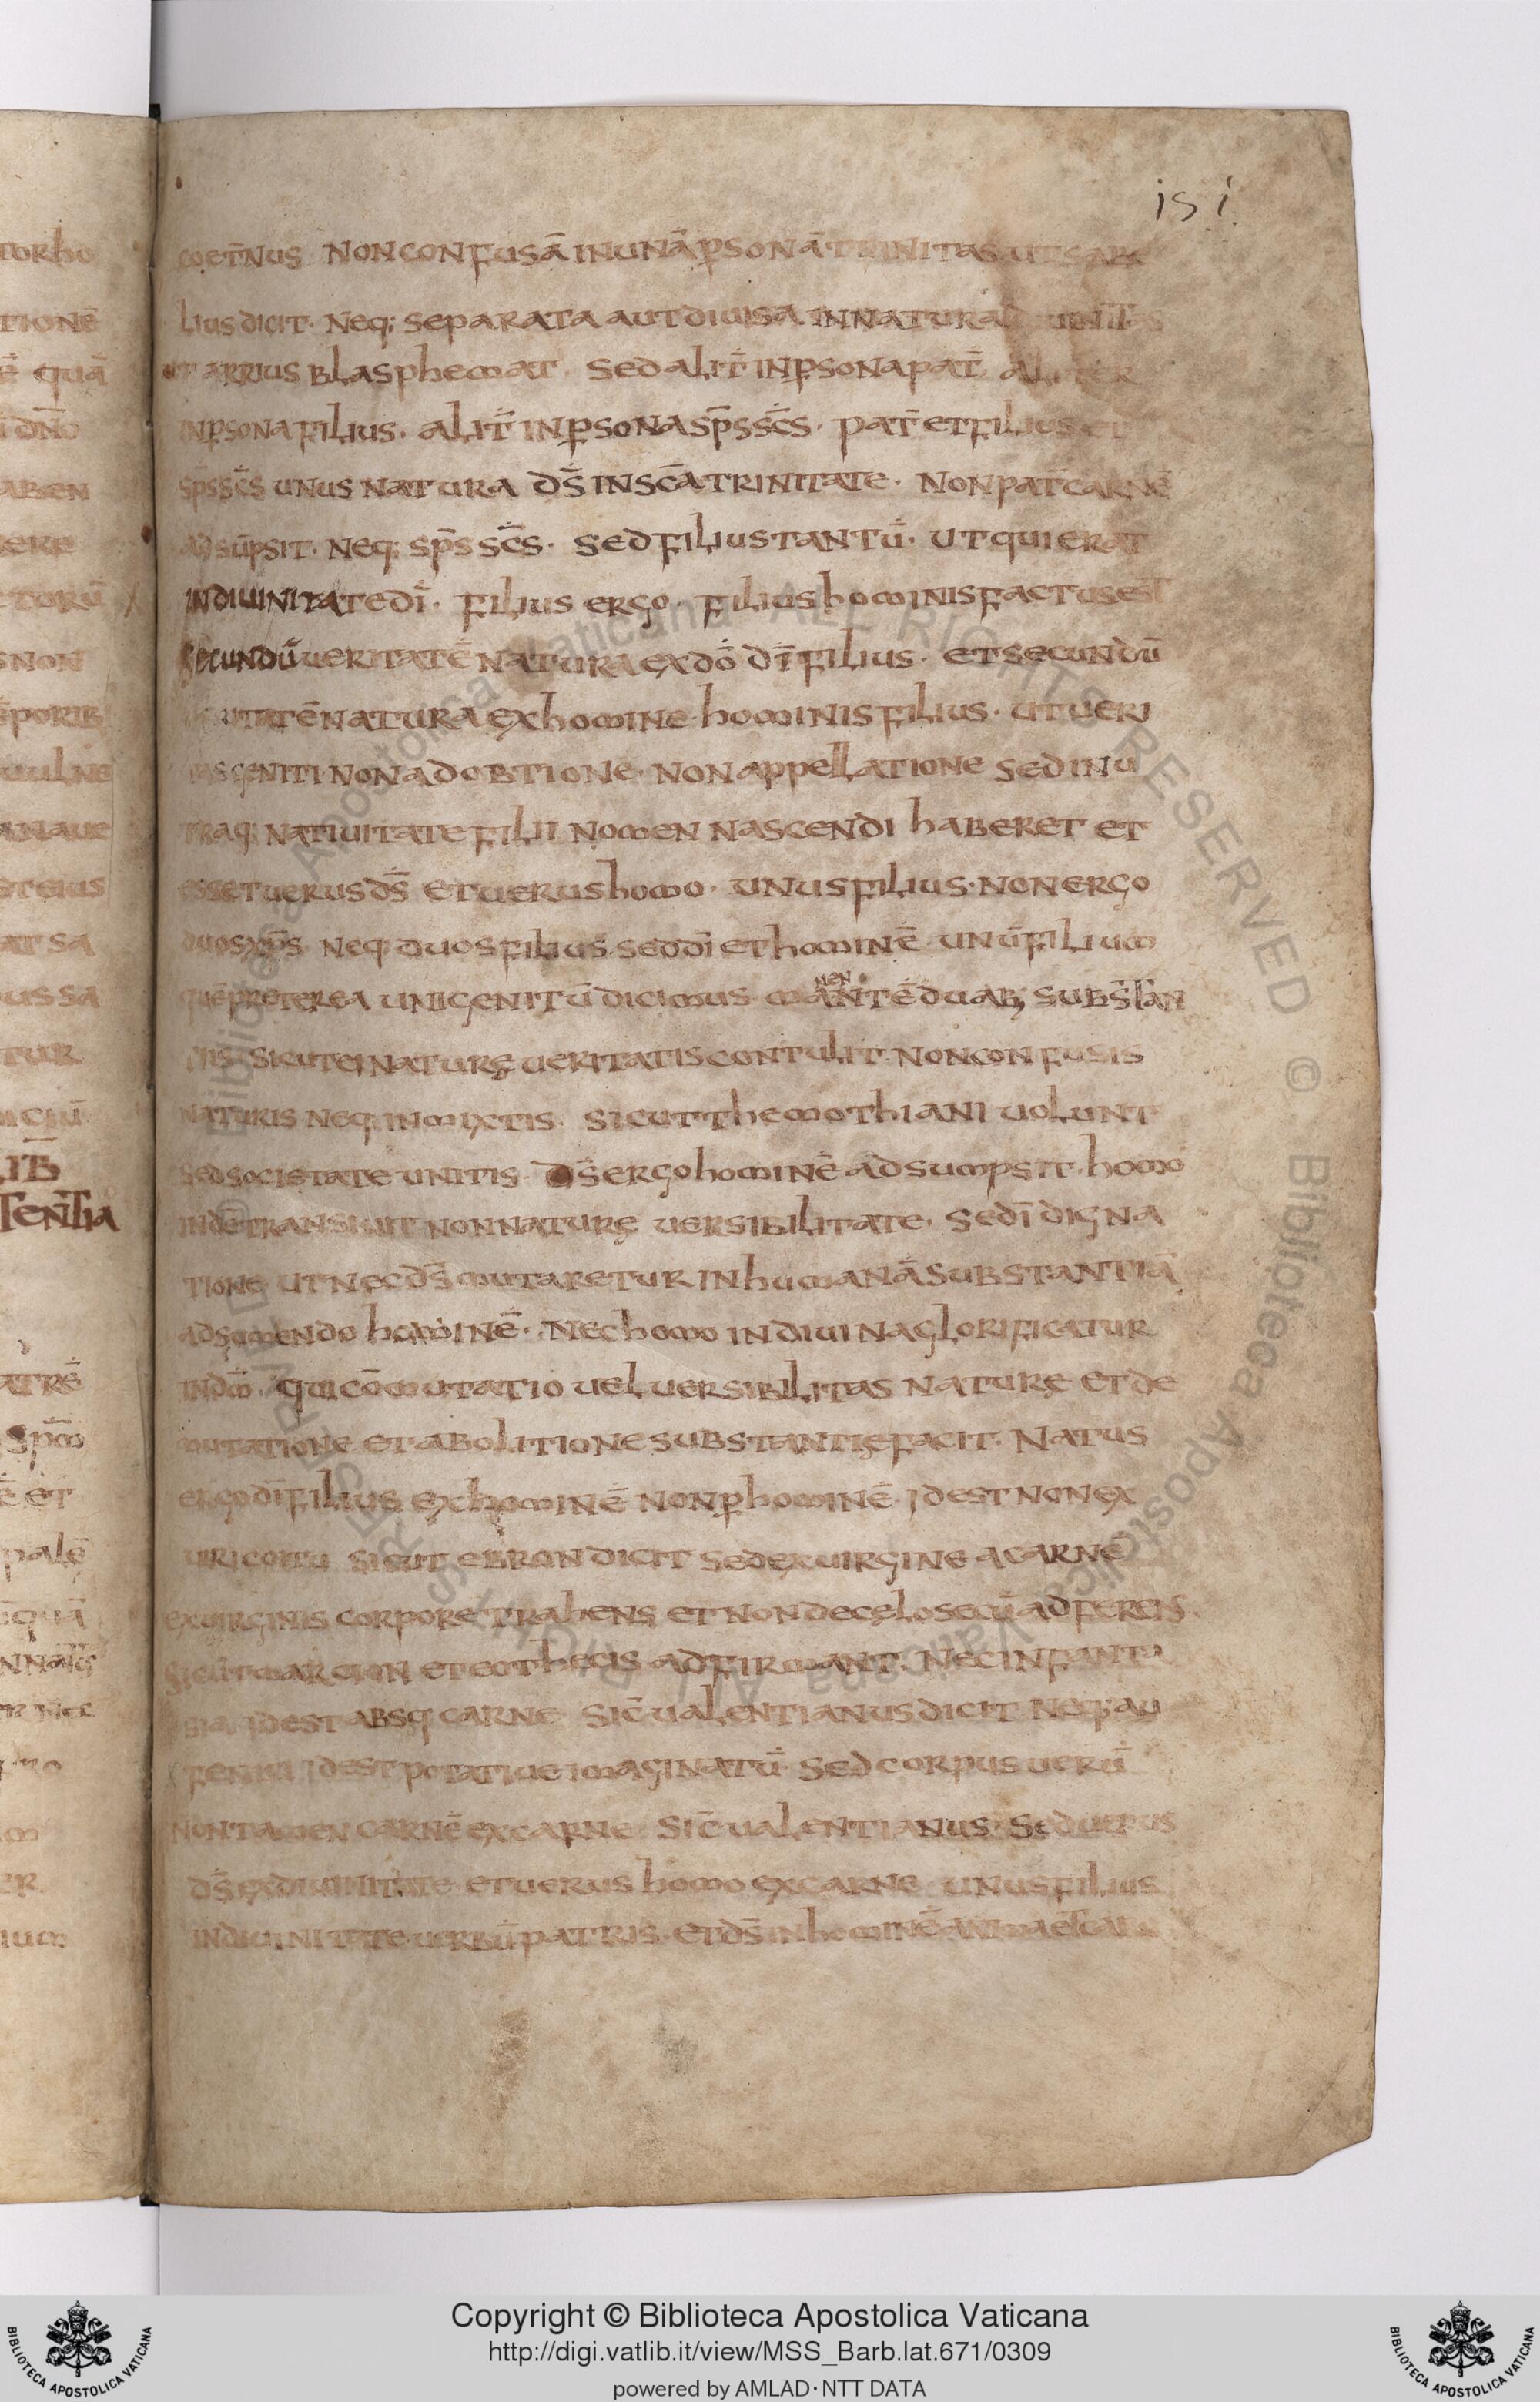 151
coet̄nus non confusā in unā p̱sonā trinitas ut sabel
lius dicit · neq; separata aut diuisa in natura diuinitas
ut arrius blasphemat · sed alit̄ in p̱sona pat̄ aliter
in p̱sona filius · alit̄ in p̱sona sp̄s sc̄s · pat̄ et filius et
sp̄s sc̄s unus natura d̄s in sc̄a trinitate · non pat̄ carnē
adsūpsit · neq; sp̄s sc̄s · sed filius tantū · ut qui erat
in diuinitate dī · filius ergo · filius hominis factus est
secundū ueritatē natura ex dō dī filius · et secundū
ueritatē natura ex homine hominis filius · ut ueri
tas geniti non adobtione · non appellatione sed in u
traq; natiuitate filii nomen nascendi haberet et
esset uerus d̄s et uerus homo · unus filius · non ergo
duos xp̄s neq; duos filius sed dī et hominē unū filium
quē proterea unigenitū dicimus manentē duab; substan
tiis sicut ei naturę ueritatis contulit non confusis
naturis neq; inmixtis · sicut themothiani uolunt
sed societate unitis · d̄s ergo hominē adsumpsit · homo
in dē transiuit non naturę uersibilitate · sed dī digna
tione ut nec d̄s mutaretur in humanā substantiā
adsumendo hominē · nec homo in diuina glorificatur
in dm̄ · qui cōmutatio uel uersibilitas naturę et de
mutatione et abolitione substantię facit · natus
ergo dī filius ex hominē non p̱ hominē · idest non ex
uiri coitu sicut ebrion dicit sed ex uirgine a carnē
ex uirginis corpore trahens et non de cęlo secū adferens
sicut marcion et eothecis adfirmant · nec in fanta
sia idest absq; carne sic̄ ualentianus dicit neq; au
idest potatiue imaginatū · sed corpus uerū
non tamen carnē ex carne sic̄ ualentianus · sed uerus
d̄s ex diuinitate et uerus homo ex carne unus filius
in diuinitate uerbū patris · et d̄s in hominē anima et caro
Copyright © Biblioteca Apostolica Vaticana
http://digi.vatlib.it/view/MSS_Barb.lat.671/0309
powered by AMLAD·NTT DATA